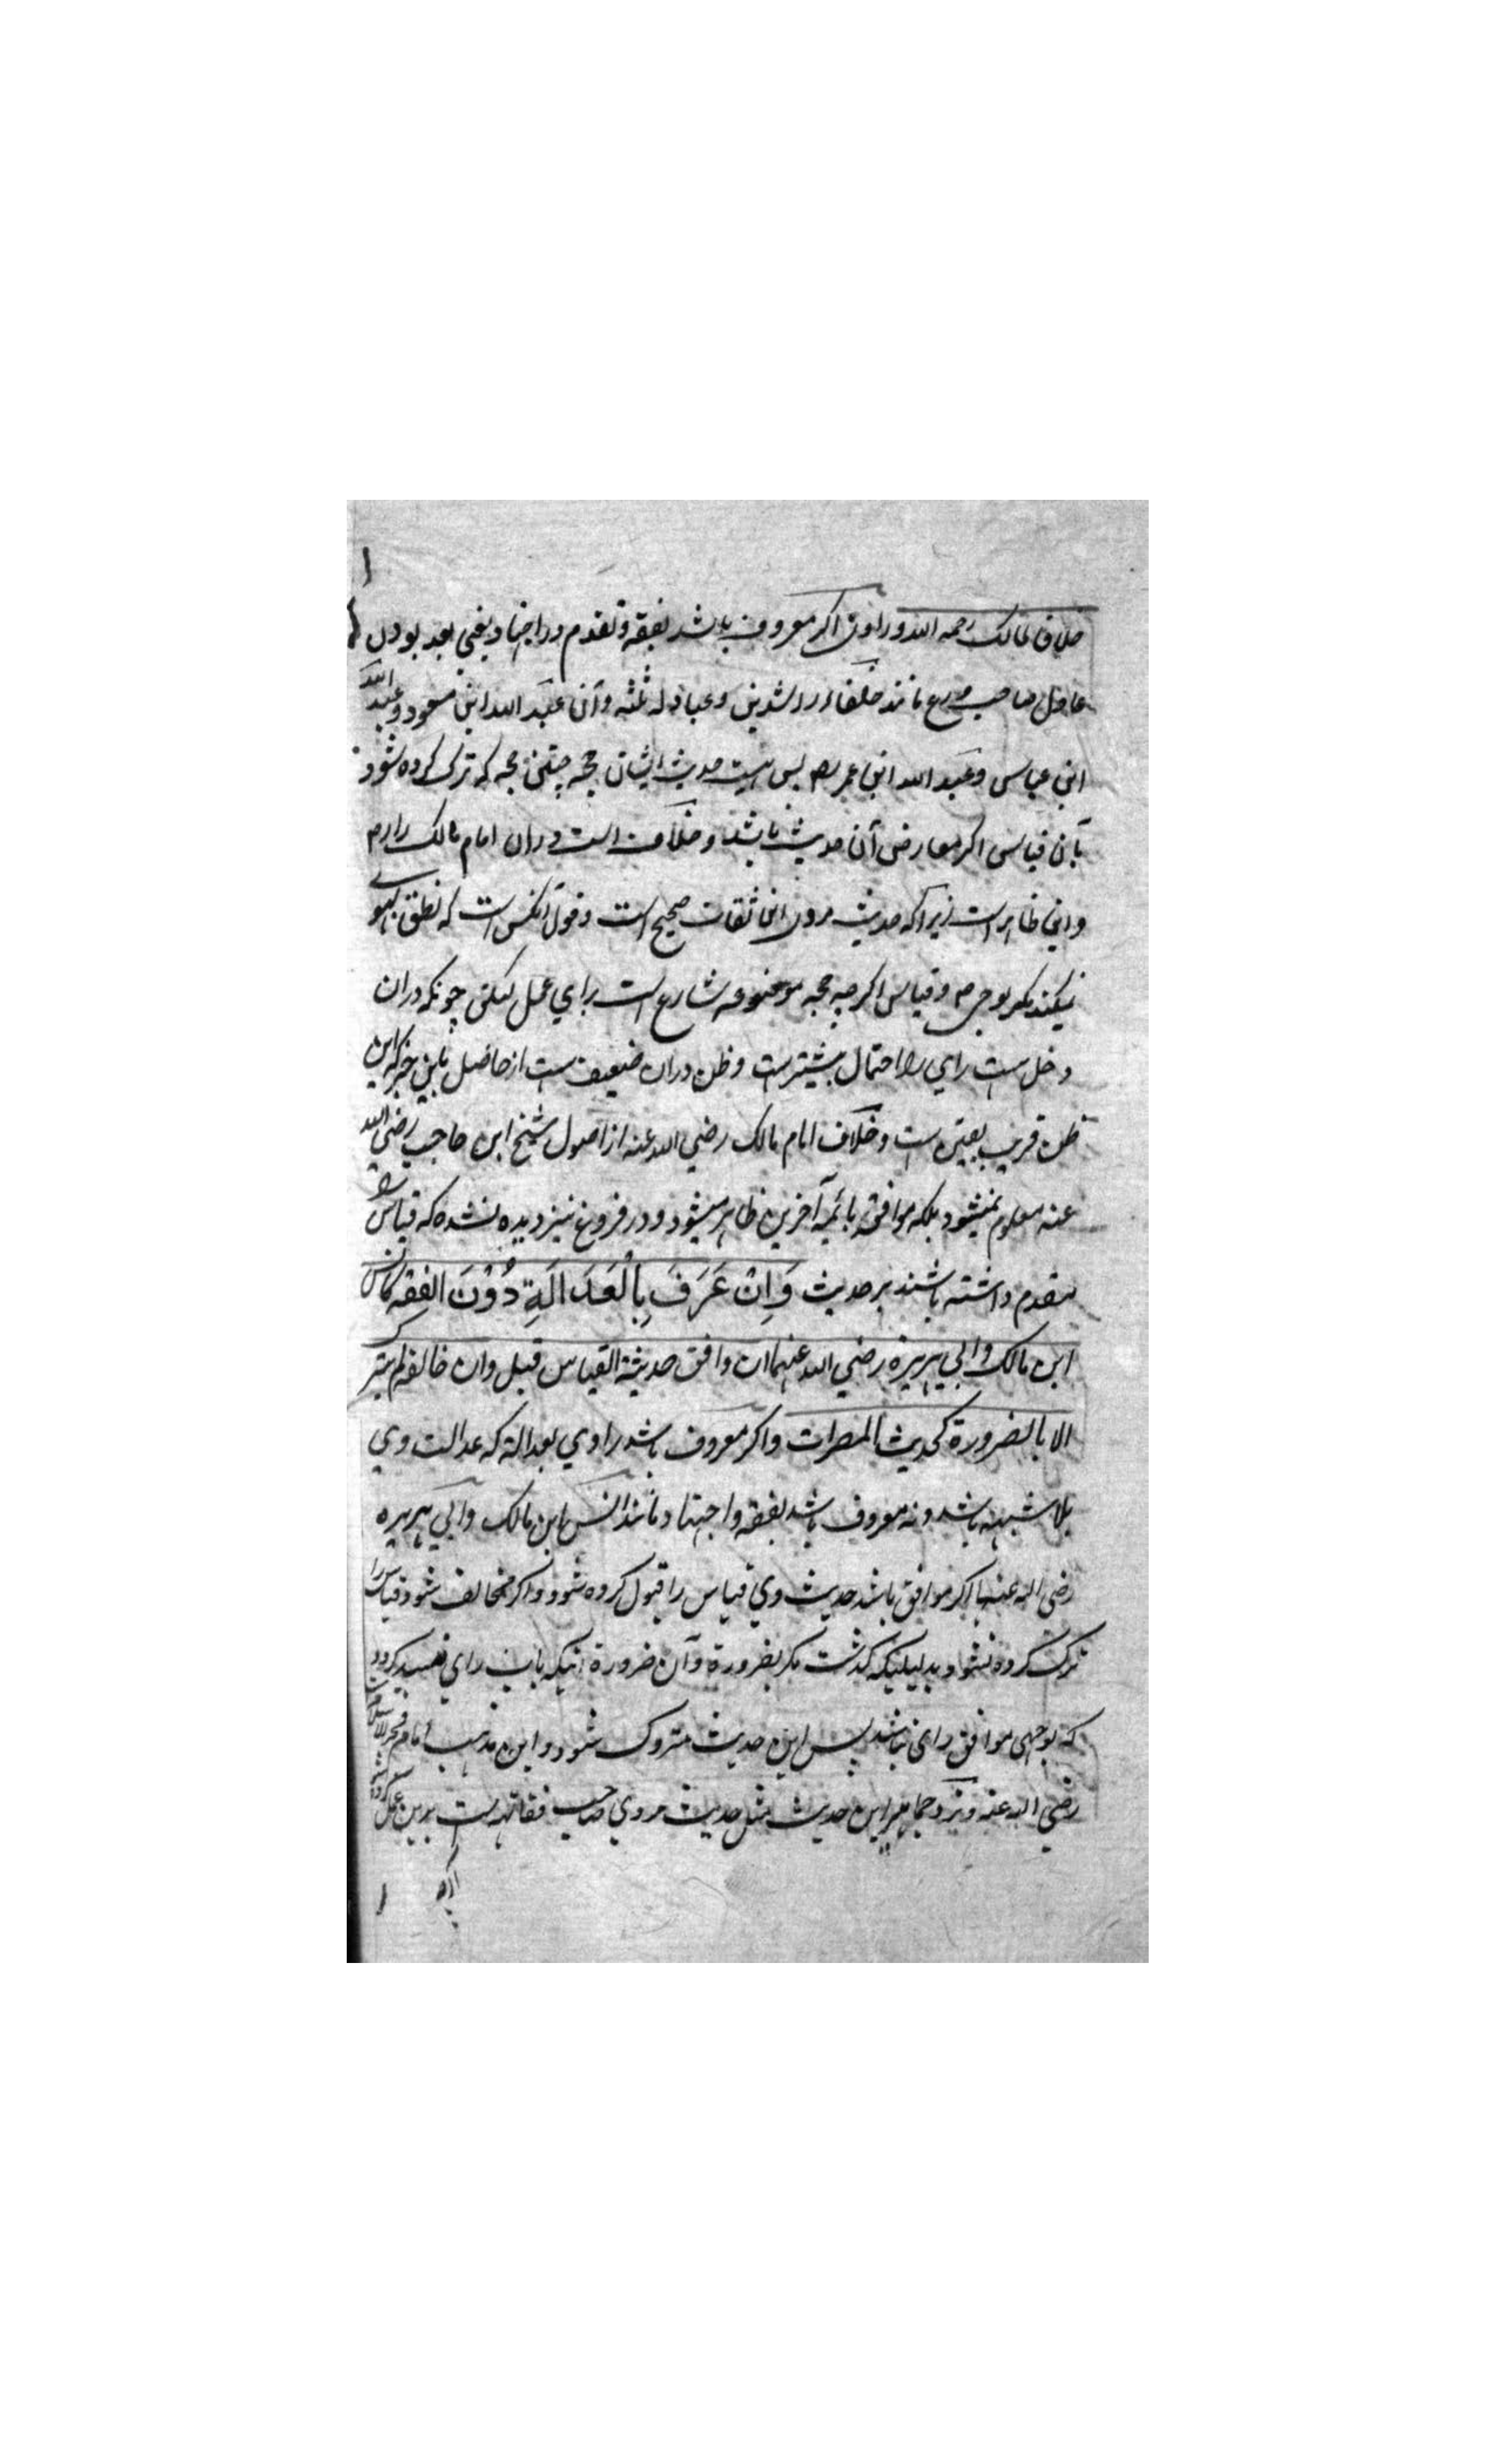 خلافا لمالک رحمه الله و راوی اکر معروف باشد بفقه و تقدم در اجتهاد یعنی بعد بودن
عادل صاحب ورع مانند خلفاء راشدین و عبادله ثلثه و آن عبد الله ابن مسعود و عبد الله
ابن عباس و عبد الله ابن عمر پس هست حدیث ایشان حجه چنین حجه که ترک کرده شود
بآن قیاس اکر معارض آن حدیث باشد و خلاف است دران امام مالک را رح
و این ظاهر است زیراکه حدیث مروی این ثقات صحیح است و قول آنکس است که نطق بهوی
نمیکند مکر بوحی و قیاس اکرچه حجه موضوعه شارع است برای عمل لیکن چونکه دران
دخل است رای را احتمال بیشتر است و ظن دران ضعیف است از حاصل باین خبر که این
ظن قریب بیقین ست و خلاف امام مالک رضی الله عنه از اصول شیخ ابن حاجب رضی الله
عنه معلوم نمیشود بلکه موافق بائمه آخرین ظاهر میشود و در فروع نیز دیده نشده که قیاس را
مقدم داشته باشند بر حدیث وَاِنْ عَرَفَ بِالْعَدَالَةِ دُوْنَ الفِقه کانس
ابن مالک و ابی هریرة رضی الله عنهما ان وافق حدیثه القیاس قبل وان خالفه لم یترک
الا بالضرورة کحدیث المصرات و اکر معروف باشد راوی بعدالة که عدالت وی
بلا شبهه باشد و نه معروف باشد بفقه و اجتهاد مانند انس ابن مالک و ابی هریره
رضی الله عنهما اکر موافق باشد حدیث وی قیاس را قبول کرده شود و اکر مخالف شود قیاس را
ترک کرده نشود بدلیلیکه کذشت مکر بضرورة و آن ضرورة اینکه باب رای منسد کردد
که بوجهی موافق رای نباشد پس این حدیث متروک شود و این مذهب امام فخر الاسلام
رضی الله عنه و نزد جماهیر این حدیث مثل حدیث مروی صاحب فقاهت است برین عمل کرده شود